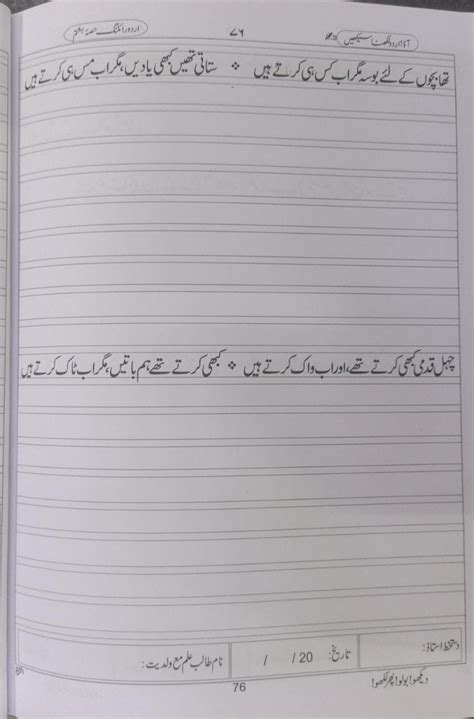 آؤ! اردو لکھنا سیکھیں ۷۶ اردو رائٹنگ حصۂ ہشتم
تھا بچوں کے لئے بوسہ مگر اب کس ہی کرتے ہیں ❖ ستاتی تھیں کبھی یادیں، مگر اب مس ہی کرتے ہیں
چہل قدمی کبھی کرتے تھے، اور اب واک کرتے ہیں ❖ کبھی کرتے تھے ہم باتیں، مگر اب ٹاک کرتے ہیں
دستخط استاذ: تاریخ: / / 20 نام طالب علم مع ولدیت:
76
دیکھو! بولو! پھر لکھو!